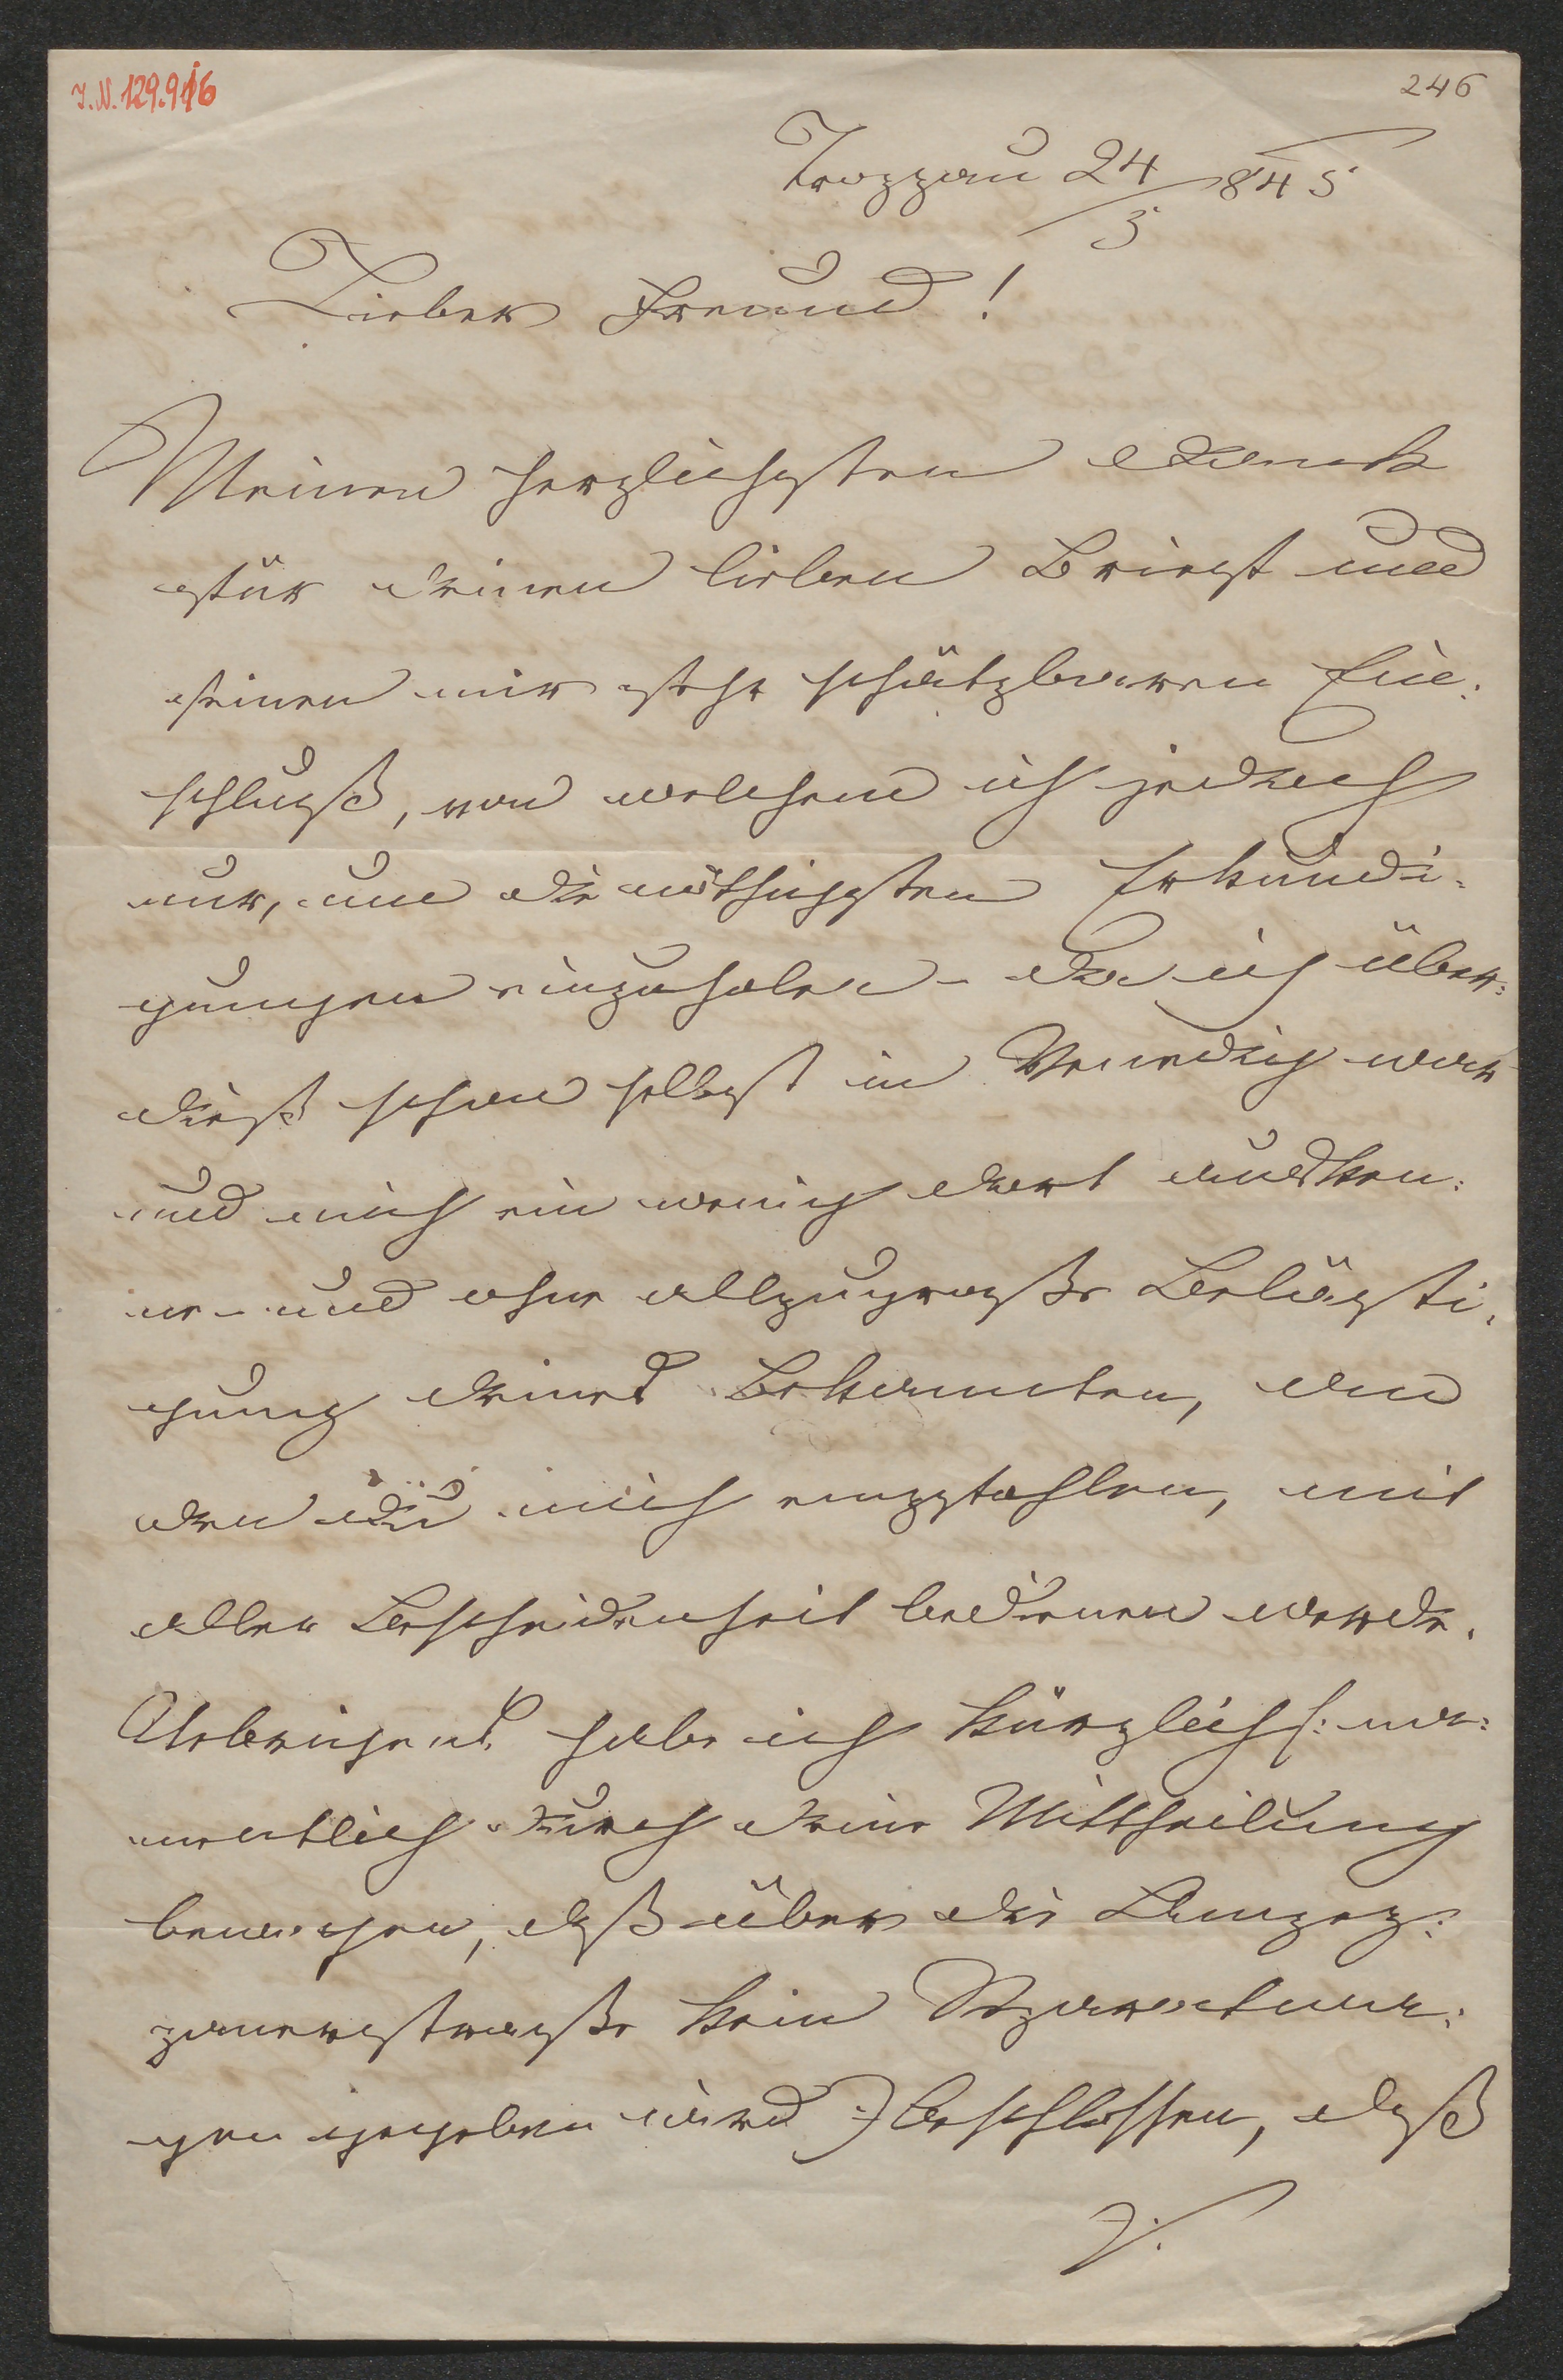 I.N. 129.916
246
Troppau 24/5 845
Lieber Freund!
Meinen herzlichsten Dank
für deinen lieben Brief und
seinen mir sehr schätzbaren Ein=
schluß, von welchem ich jedoch
nur, um die nöthigsten Erkundi=
gungen einzuholen – da ich über=
dieß schon selbst in Venedig war
und mich ein wenig dort auskenne
ne – und ohne allzugroße Belästi=
gung deines Bekannten, an
den du mich empfohlen, mit
aller Bescheidenheit bedienen werde.
Uebrigens habe ich kürzlich /: na=
mentlich durch deine Mittheilung
bewogen, daß über die
kein Separatwa=
gen gegeben wird :/ beschlossen, daß